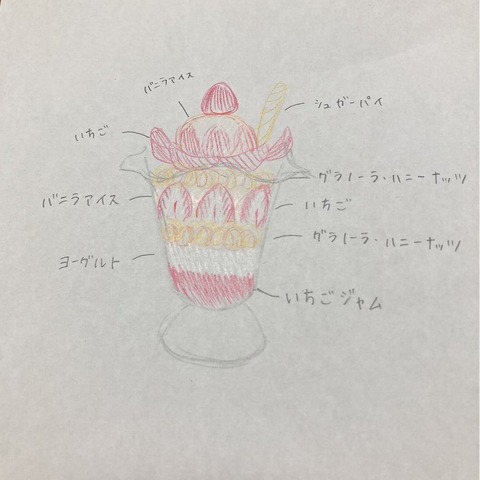 バニラアイス
シュガーパイ
いちご
グラノーラ・ハニーナッツ
バニラアイス
いちご
グラノーラ・ハニーナッツ
ヨーグルト
いちごジャム